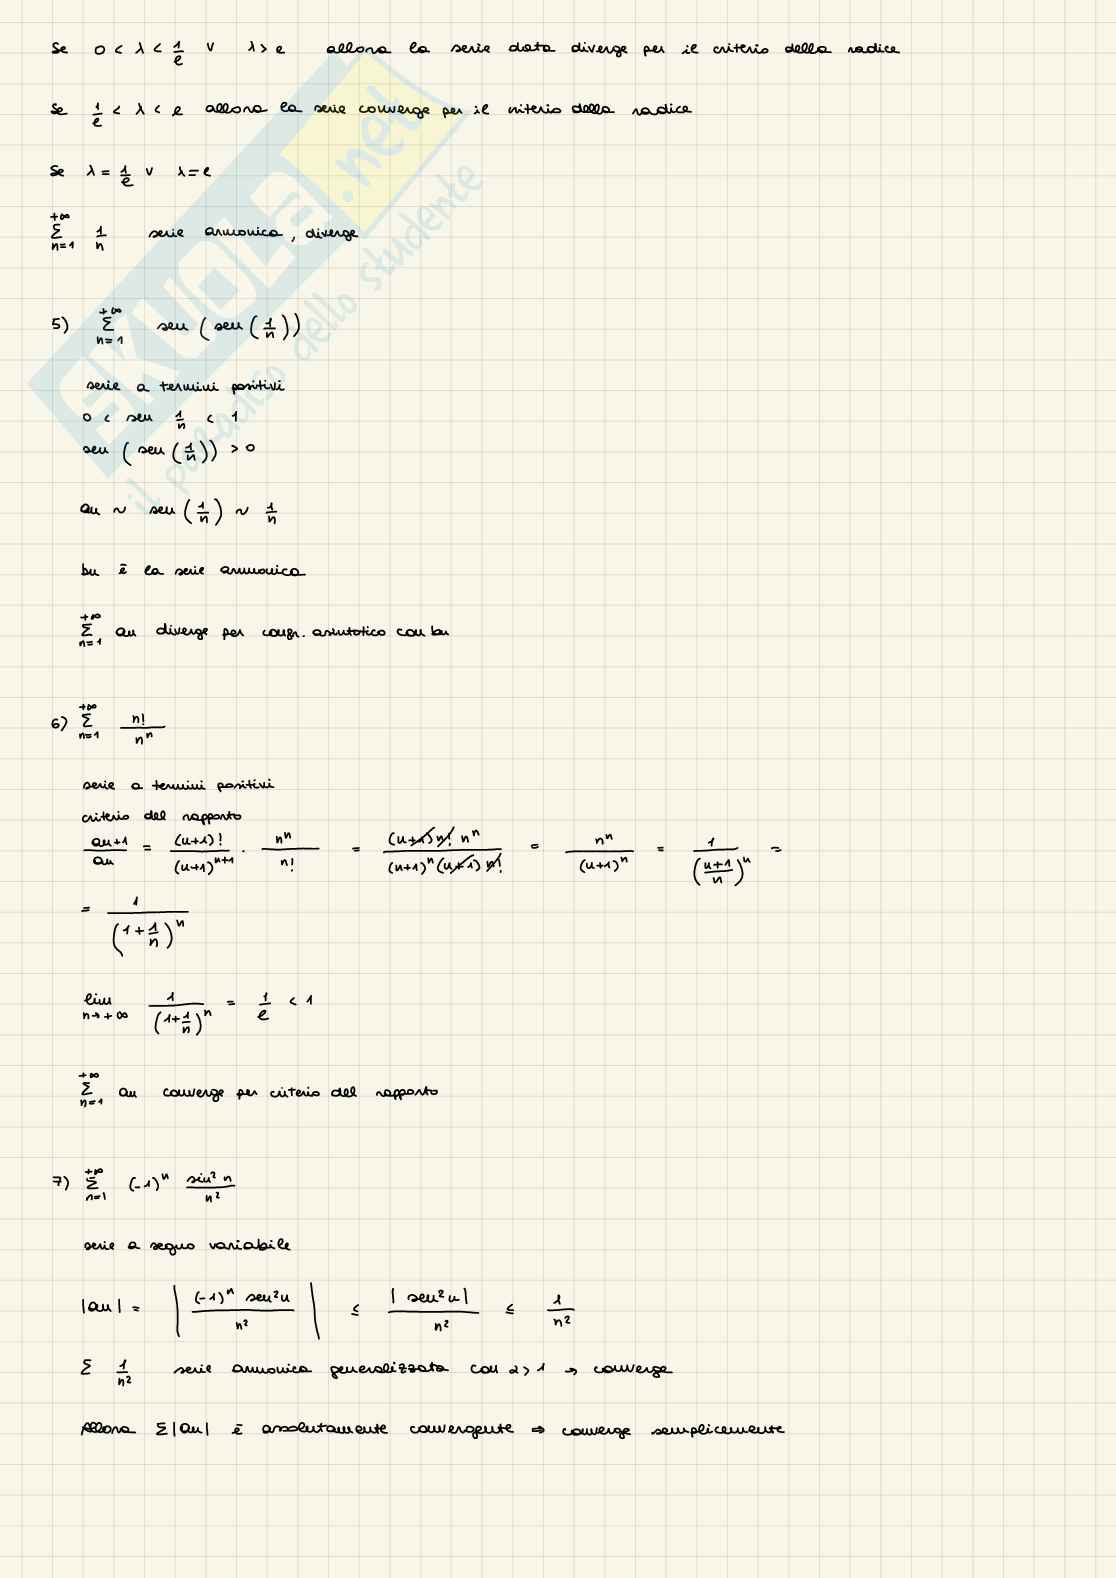 Se 0 < λ < 1/e ∨ λ > e allora la serie data diverge per il criterio della radice
Se 1/e < λ < e allora la serie converge per il criterio della radice
Se λ = 1/e ∨ λ = e
+∞ Σ n=1 1/n serie armonica, diverge
5) +∞ Σ n=1 sen (sen (1/n))
serie a termini positivi
0 < sen 1/n < 1
sen (sen (1/n)) > 0
an ~ sen (1/n) ~ 1/n
bn è la serie armonica
+∞ Σ n=1 an diverge per confr. asintotico con bn
6) +∞ Σ n=1 n!/n^n
serie a termini positivi
criterio del rapporto
an+1/an = (n+1)!/(n+1)^(n+1) · n^n/n! = (n+1)n! n^n/(n+1)^n (n+1) n! = n^n/(n+1)^n = 1/((n+1)/n)^n =
= 1/(1+1/n)^n
lim n→+∞ 1/(1+1/n)^n = 1/e < 1
+∞ Σ n=1 an converge per criterio del rapporto
7) +∞ Σ n=1 (-1)^n sin² n/n²
serie a segno variabile
|an| = |(-1)^n sen² n/n²| ≤ |sen² n|/n² ≤ 1/n²
Σ 1/n² serie armonica generalizzata con α>1 → converge
Allora Σ|an| è assolutamente convergente ⇒ converge semplicemente
SKUOLA.net
il paradiso dello studente